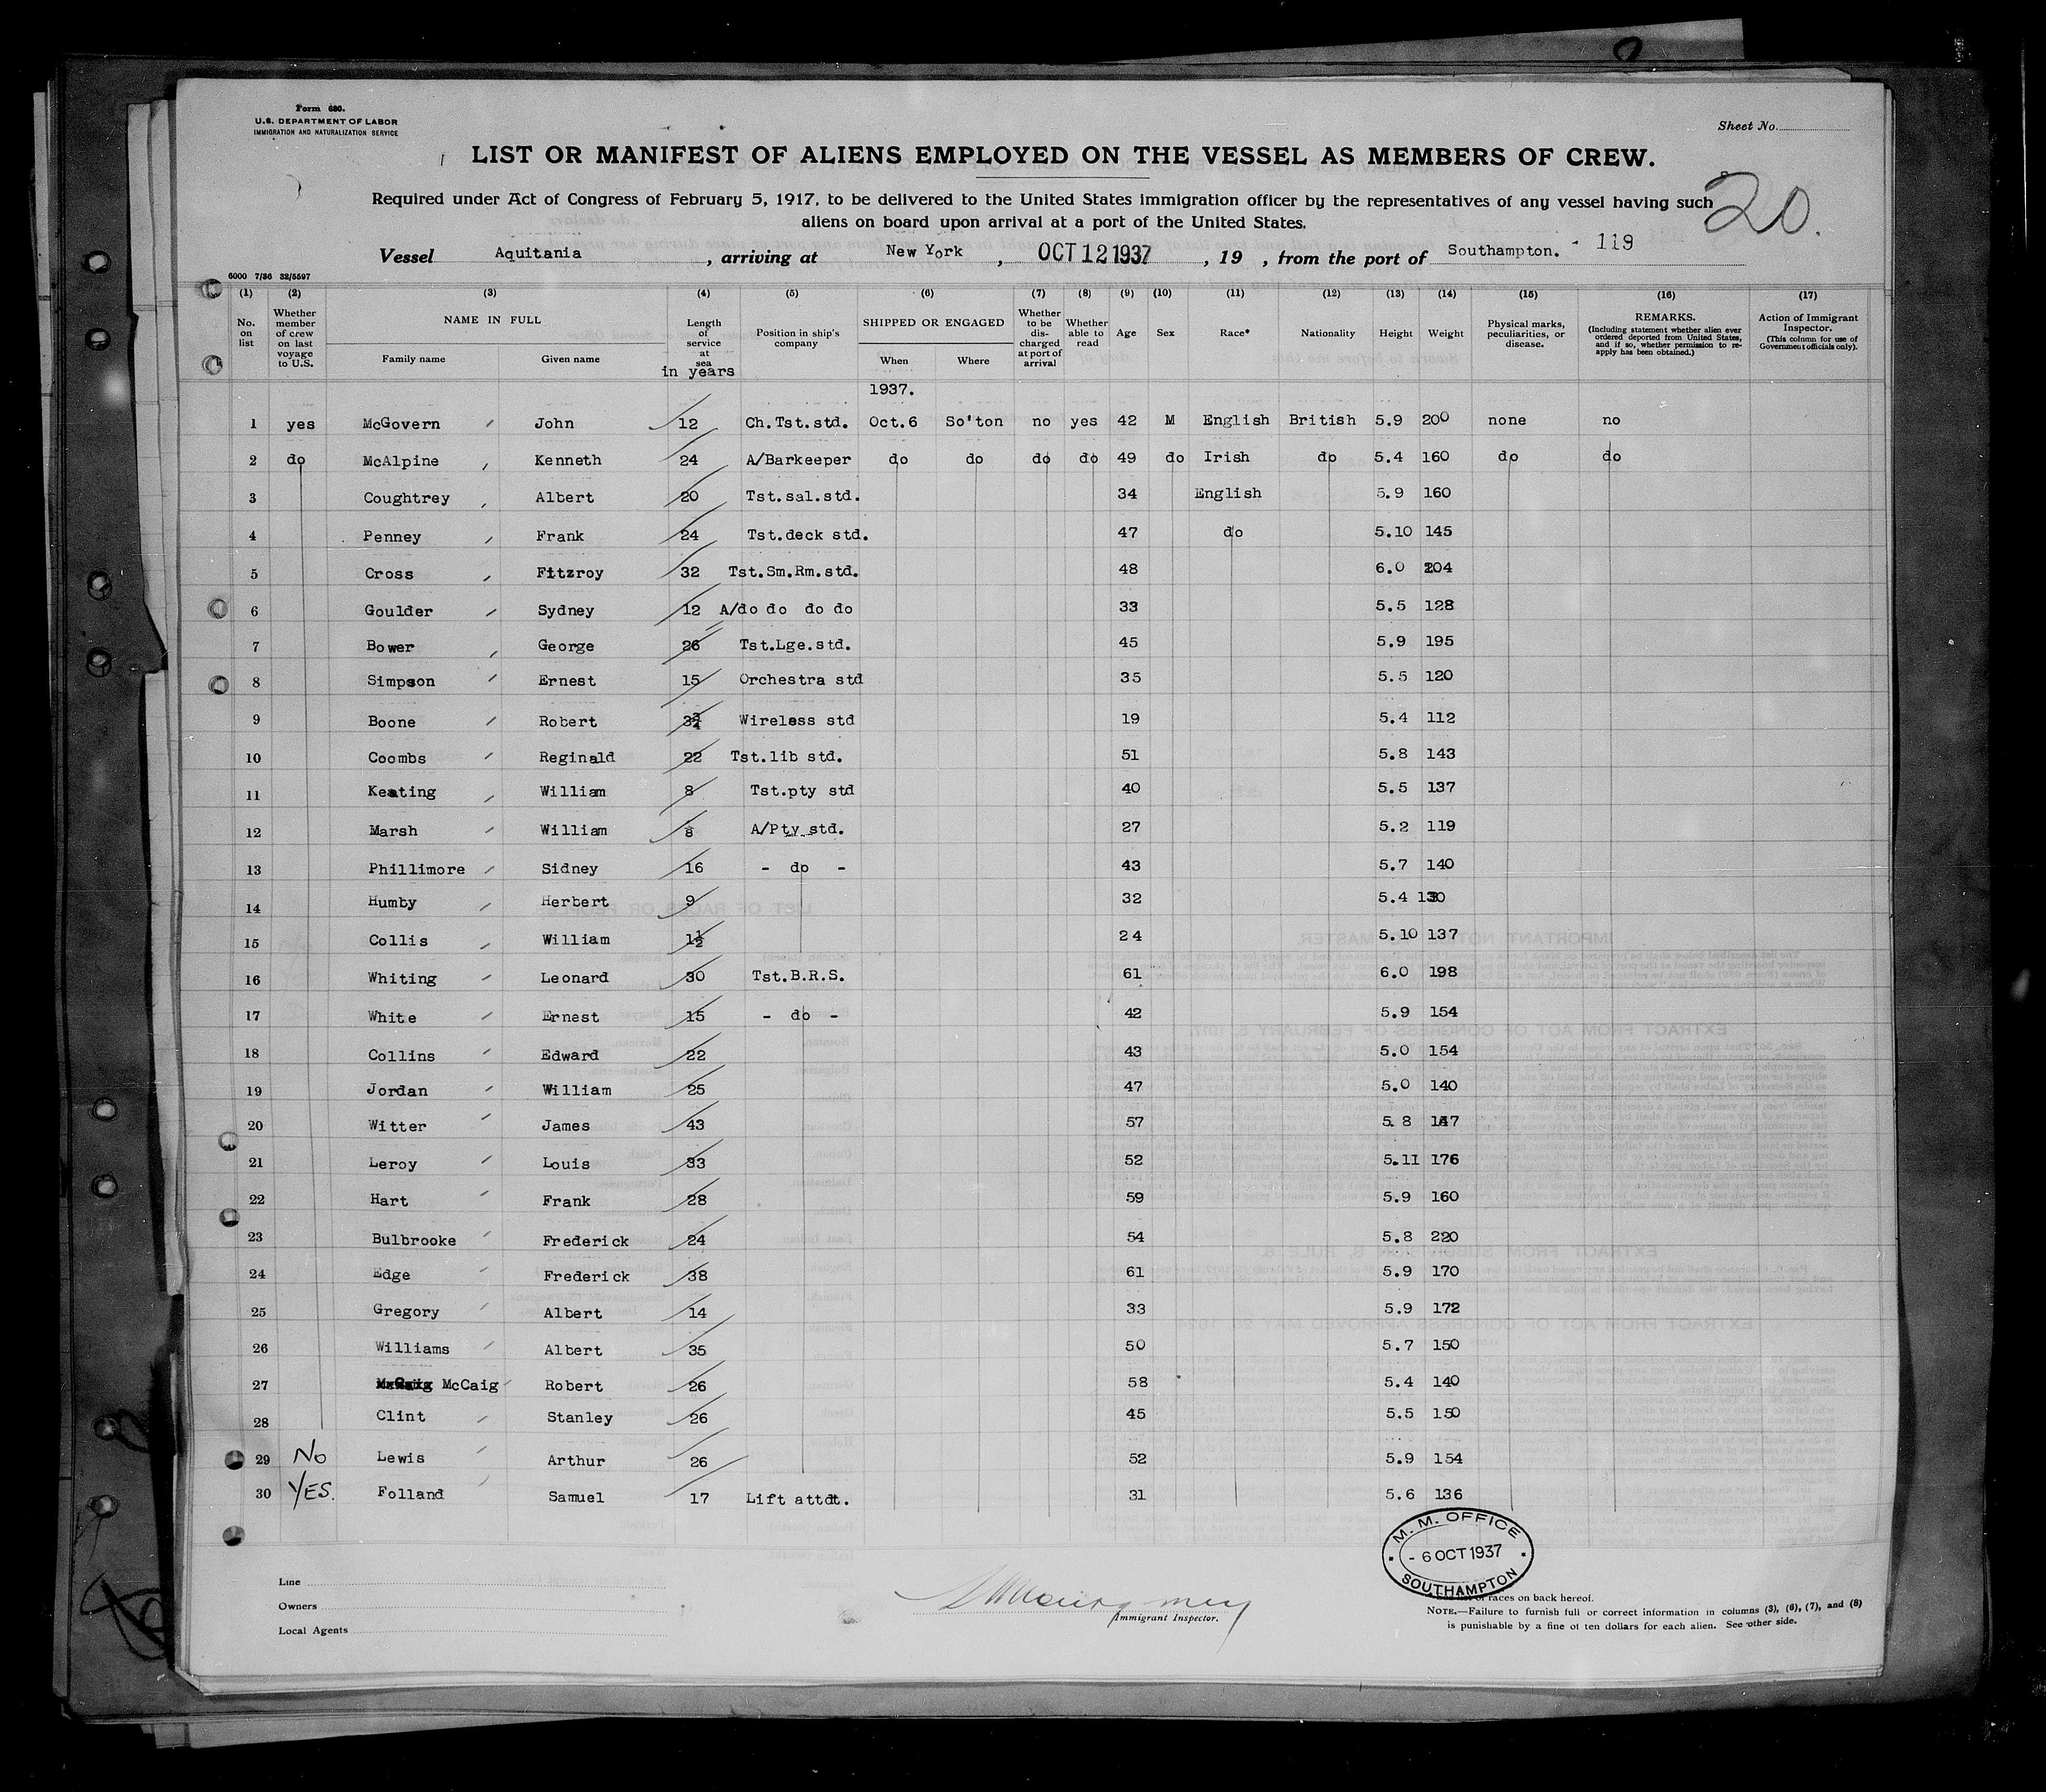 Form 680.
U.S. DEPARTMENT OF LABOR
IMMIGRATION AND NATURALIZATION SERVICE
Sheet No.
LIST OR MANIFEST OF ALIENS EMPLOYED ON THE VESSEL AS MEMBERS OF CREW.
20.
Required under Act of Congress of February 5, 1917, to be delivered to the United States immigration officer by the representatives of any vessel having such
aliens on board upon arrival at a port of the United States.
Vessel Aquitania, arriving at New York, OCT 12 1937, 19 , from the port of Southampton. - 119
6000 7/36 32/5597
(1) (2) (3) (4) (5) (6) (7) (8) (9) (10) (11) (12) (13) (14) (15) (16) (17)
No. on list
Whether member of crew on last voyage to U.S.
NAME IN FULL
Family name Given name
Length of service at sea
in years
Position in ship's company
SHIPPED OR ENGAGED
When Where
Whether to be discharged at port of arrival
Whether able to read
Age Sex Race* Nationality Height Weight
Physical marks, peculiarities, or disease.
REMARKS.
(Including statement whether alien ever ordered deported from United States, and if so, whether permission to re-apply has been obtained.)
Action of Immigrant Inspector.
(This column for use of Government officials only).
1937.
1 yes McGovern John 12 Ch.Tst.std. Oct.6 So'ton no yes 42 M English British 5.9 200 none no
2 do McAlpine , Kenneth 24 A/Barkeeper do do do do 49 do Irish do 5.4 160 do do
3 Coughtrey , Albert 20 Tst.sal.std. 34 English 5.9 160
4 Penney , Frank 24 Tst.deck std. 47 do 5.10 145
5 Cross , Fitzroy 32 Tst.Sm.Rm.std. 48 6.0 204
6 Goulder Sydney 12 A/do do do do 33 5.5 128
7 Bower , George 26 Tst.Lge.std. 45 5.9 195
8 Simpson Ernest 15 Orchestra std 35 5.5 120
9 Boone Robert Wireless std 19 5.4 112
10 Coombs Reginald 22 Tst.lib std. 51 5.8 143
11 Keating William 8 Tst.pty std 40 5.5 137
12 Marsh William 8 A/Pty std. 27 5.2 119
13 Phillimore Sidney 16 - do - 43 5.7 140
14 Humby Herbert 9 32 5.4 130
15 Collis William 1½ 24 5.10 137
16 Whiting Leonard 30 Tst.B.R.S. 61 6.0 198
17 White Ernest 15 - do - 42 5.9 154
18 Collins Edward 22 43 5.0 154
19 Jordan William 25 47 5.0 140
20 Witter James 43 57 5.8 147
21 Leroy Louis 33 52 5.11 176
22 Hart Frank 28 59 5.9 160
23 Bulbrooke Frederick 24 54 5.8 220
24 Edge Frederick 38 61 5.9 170
25 Gregory Albert 14 33 5.9 172
26 Williams Albert 35 50 5.7 150
27 McCaig Robert 26 58 5.4 140
28 Clint Stanley 26 45 5.5 150
29 No Lewis Arthur 26 52 5.9 154
30 YES. Folland Samuel 17 Lift attdt. 31 5.6 136
M. M. OFFICE
- 6 OCT 1937
SOUTHAMPTON
Line
Owners
Local Agents
Immigrant Inspector.
races on back hereof.
NOTE.—Failure to furnish full or correct information in columns (3), (6), (7), and (8)
is punishable by a fine of ten dollars for each alien. See other side.